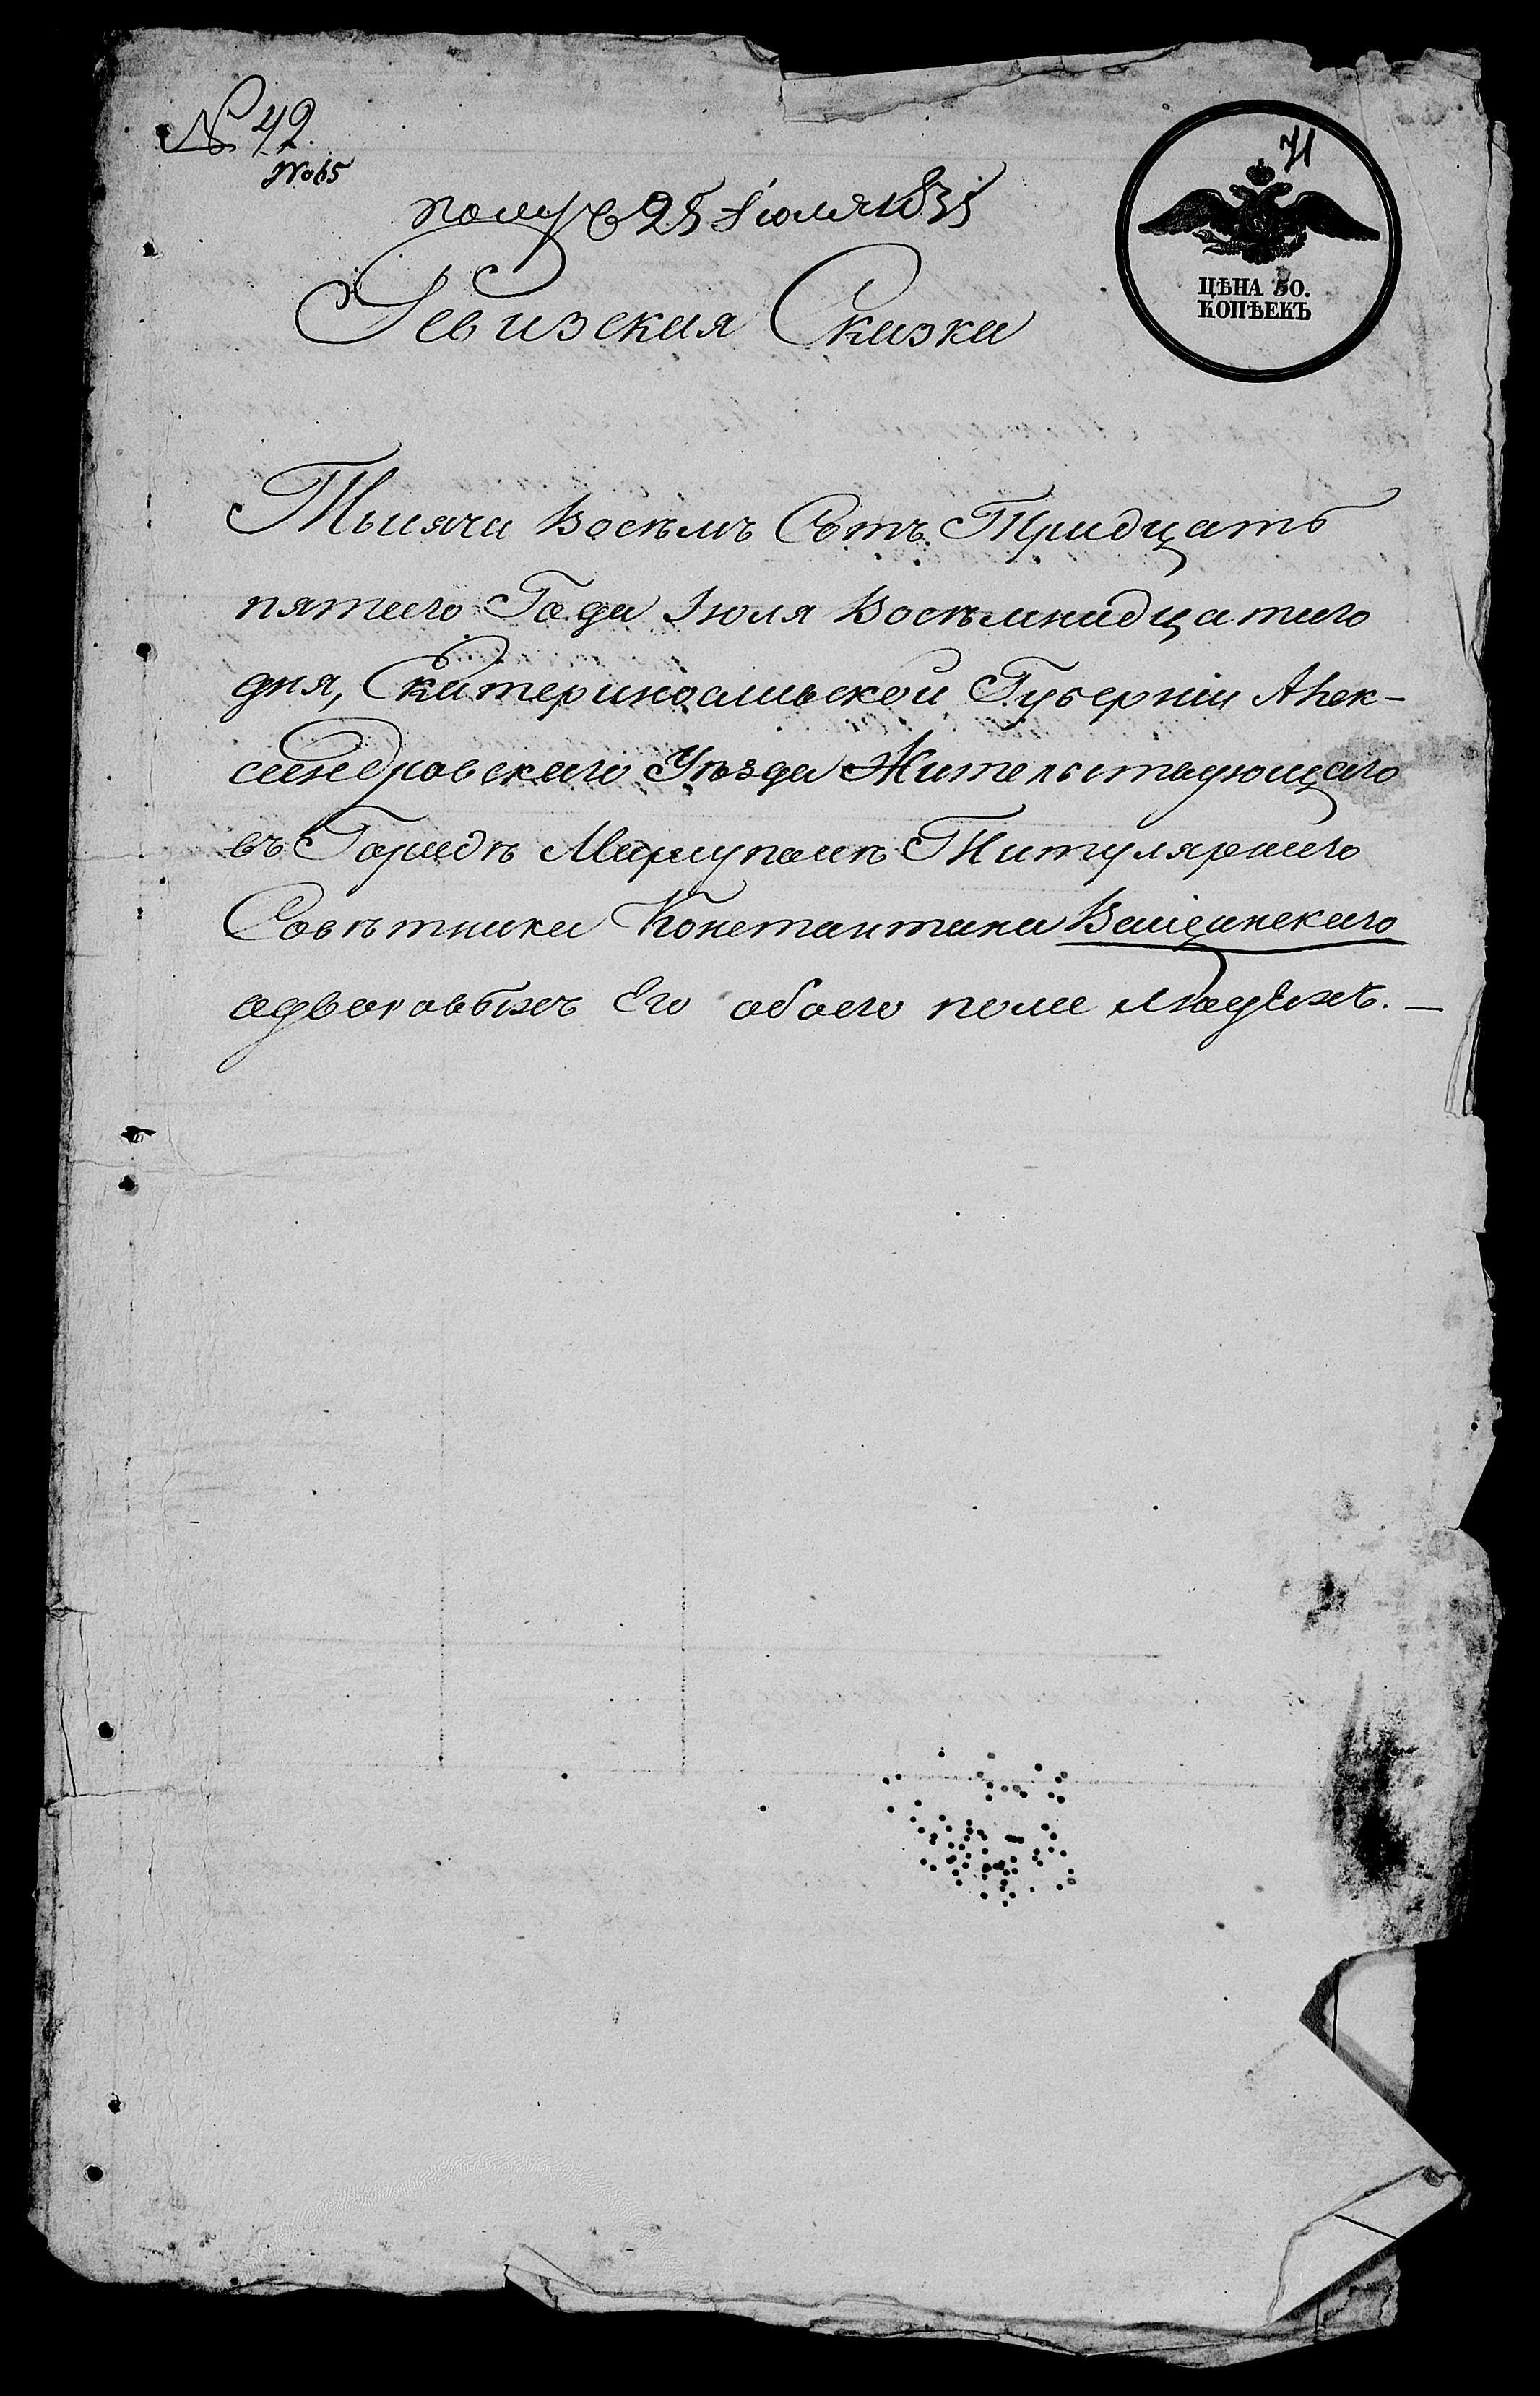 № 42.
№ 65
получ 25 Іюля 1835
ЦѢНА 50.
КОПѢЕКЪ
Ревизская Сказка
Тысяча Восѣмъ Сотъ Тридцать
пятаго Года Іюля Восѣмнадцатаго
дня, Екатеринославской Губерніи Алек-
сандровскаго Уѣзда Жительствующаго
въ Городѣ Мариуполѣ Титулярнаго
Совѣтника Константина
одворовыхъ Его обоего пола людехъ. —